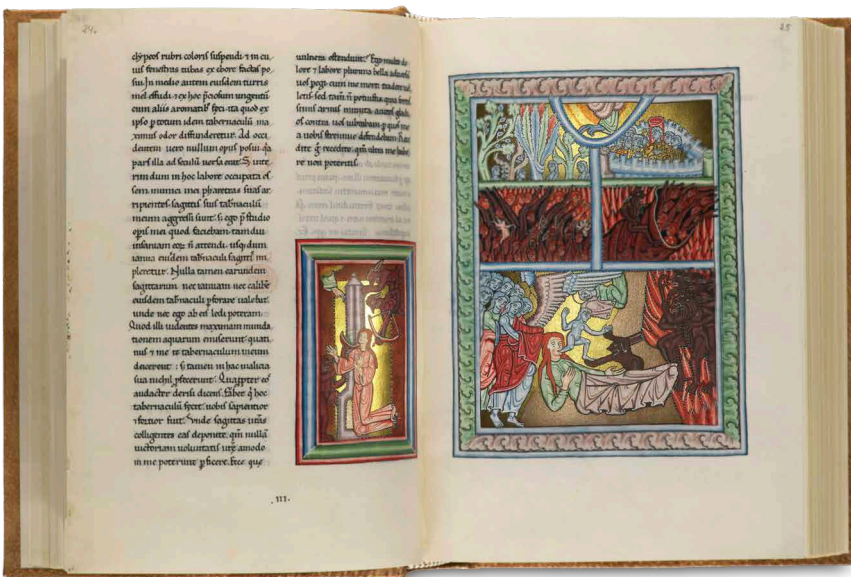 24.
clypeos rubri coloris suspendi ⁊ in cu
ius fenestris tubas ex ebore factas po
sui. In medio autem eiusdem turris
mel effudi ⁊ ex hoc p̄ciosum ungentū
cum aliis aromatib; feci ita quod ex
ipso p totum idem tabernaculū ma
ximus odor diffunderetur. Ad occi
dentem uero nullum opus posui q̄a
pars illa ad seculū uersa erat. S; inte
rim dum in hoc labore occupata es
sem, inimici mei pharetras suas ar
ripientes, sagittis suis tabernaculū
meum aggressi sunt; s; ego p̄ studio
opis mei quod faciebam, tam diu
insaniam eoꝝ n̄ attendi, usq; dum
ianua eiusdem tabernaculi sagittis im
pleretur. Nulla tamen earundem
sagittarum nec ianuam nec calibē
eiusdem tabernaculi pforare ualebat,
unde nec ego ab eis ledi poteram.
Quod illi uidentes maximam inunda
tionem aquarum emiserunt, quati
nus ⁊ me ⁊ tabernaculum meum
deicerent; s; tamen in hac malicia
sua nichil pfecerunt. Quappter eos
audacter derisi dicens. Faber q̇ hoc
tabernaculū fecit, uobis sapientior
⁊ fortior fuit. Vnde sagittas uras
colligentes eas deponite, qm̄ nullā
uictoriam uoluntatis ure amodo
in me poterunt pficere. Ecce que
uulnera ostenderint. Ego multo do
lore ⁊ labore plurima bella aduersū
uos pegi cum me morti tradere uel
letis, sed tam̄ n̄ potuistis, quia fortis
simis armis munita, acutos gladi
os contra uos uibrabam, p quos me
a uobis strennue defendebam. Rece
dite q̇ recedite, qm̄ ultra me habe
re non poteritis.
.III.
25